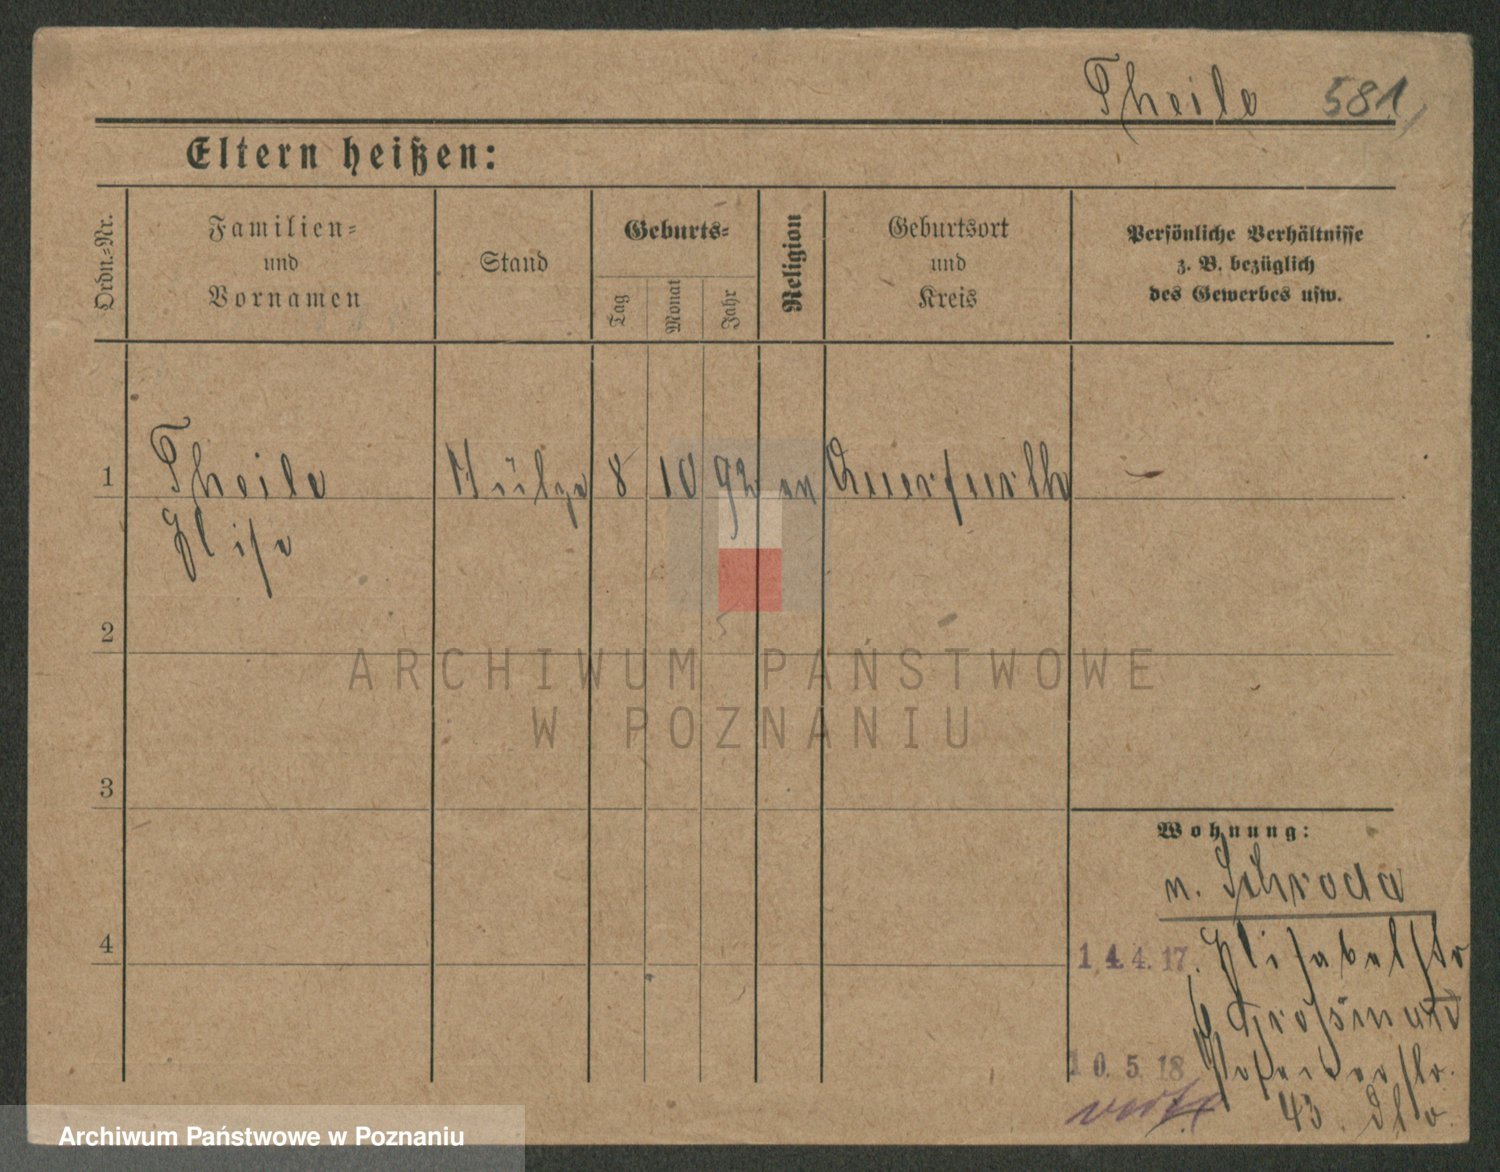 Theile 581
Eltern heißen:
Ordn.-Nr.
Familien=
und
Vornamen
Stand
Geburts=
Tag
Monat
Jahr
Religion
Geburtsort
und
Kreis
Persönliche Verhältnisse
z. B. bezüglich
des Gewerbes usw.
1 Theile 8 10 92 ev Querfurth
Elise
2
3
4
ARCHIWUM PAŃSTWOWE
W POZNANIU
Wohnung:
n. Schroda
14.4.17. Elisabethstr
10.5.18
43
Archiwum Państwowe w Poznaniu